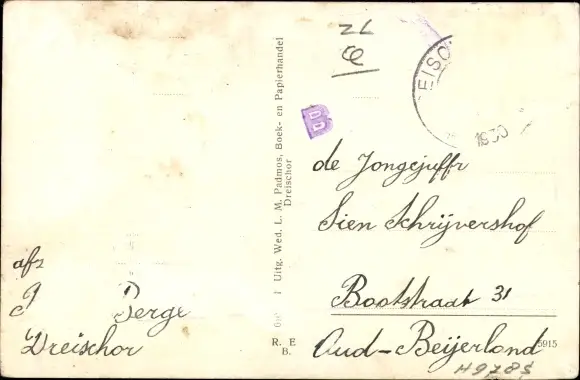 ZL
EISC
1930
de Jongejuffr
Sien Schrijvershof
Bootstraat 31
Oud-Beijerland
5915
H9785
Uitg. Wed. L. M. Padmos, Boek- en Papierhandel
Dreischor
R. E
B.
afz
Berge
Dreischor